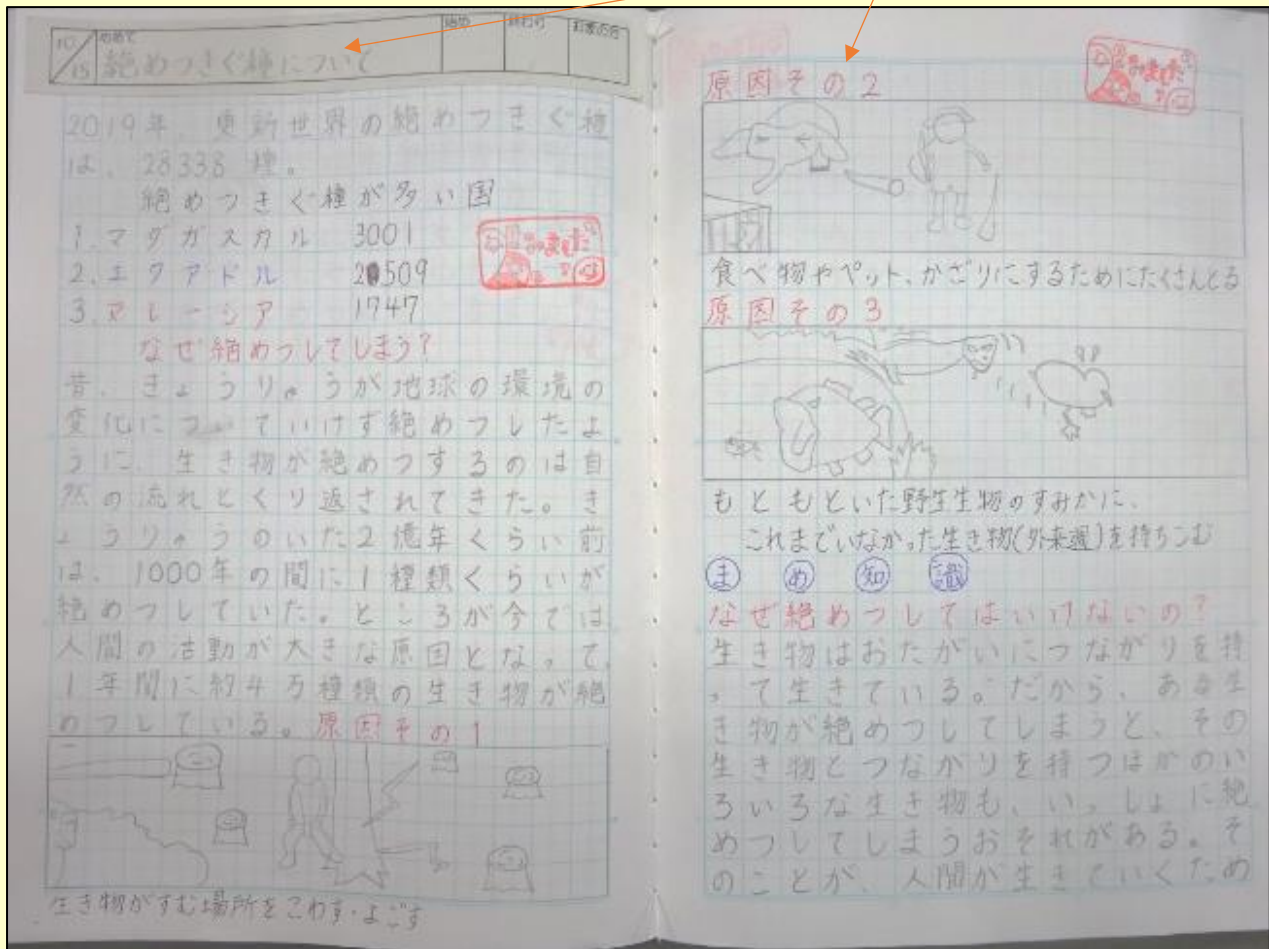 10/15
めあて
絶めつきぐ種について
2019年、更新世界の絶めつきぐ種
は、28338種。
絶めつきぐ種が多い国
1.マダガスカル 3001
2.エクアドル 2509
3.マレーシア 1747
なぜ絶めつしてしまう?
昔、きょうりゅうが地球の環境の
変化についていけず絶めつしたよ
うに、生き物が絶めつするのは自
然の流れとくり返されてきた。き
ょうりゅうのいた2億年くらい前
は、1000年の間に1種類くらいが
絶めつしていた。ところが今では
人間の活動が大きな原因となって、
1年間に約4万種類の生き物が絶
めつしている。原因その1
生き物がすむ場所をこわす・よごす
原因その2
食べ物やペット、かざりにするためにたくさんとる
原因その3
もともといた野生生物のすみかに、
これまでいなかった生き物(外来週)を持ちこむ
まめ知識
なぜ絶めつしてはいけないの?
生き物はおたがいにつながりを持
って生きている。だから、ある生
き物が絶めつしてしまうと、その
生き物とつながりを持つほかのい
ろいろな生き物も、いっしょに絶
めつしてしまうおそれがある。そ
のことが、人間が生きていくため